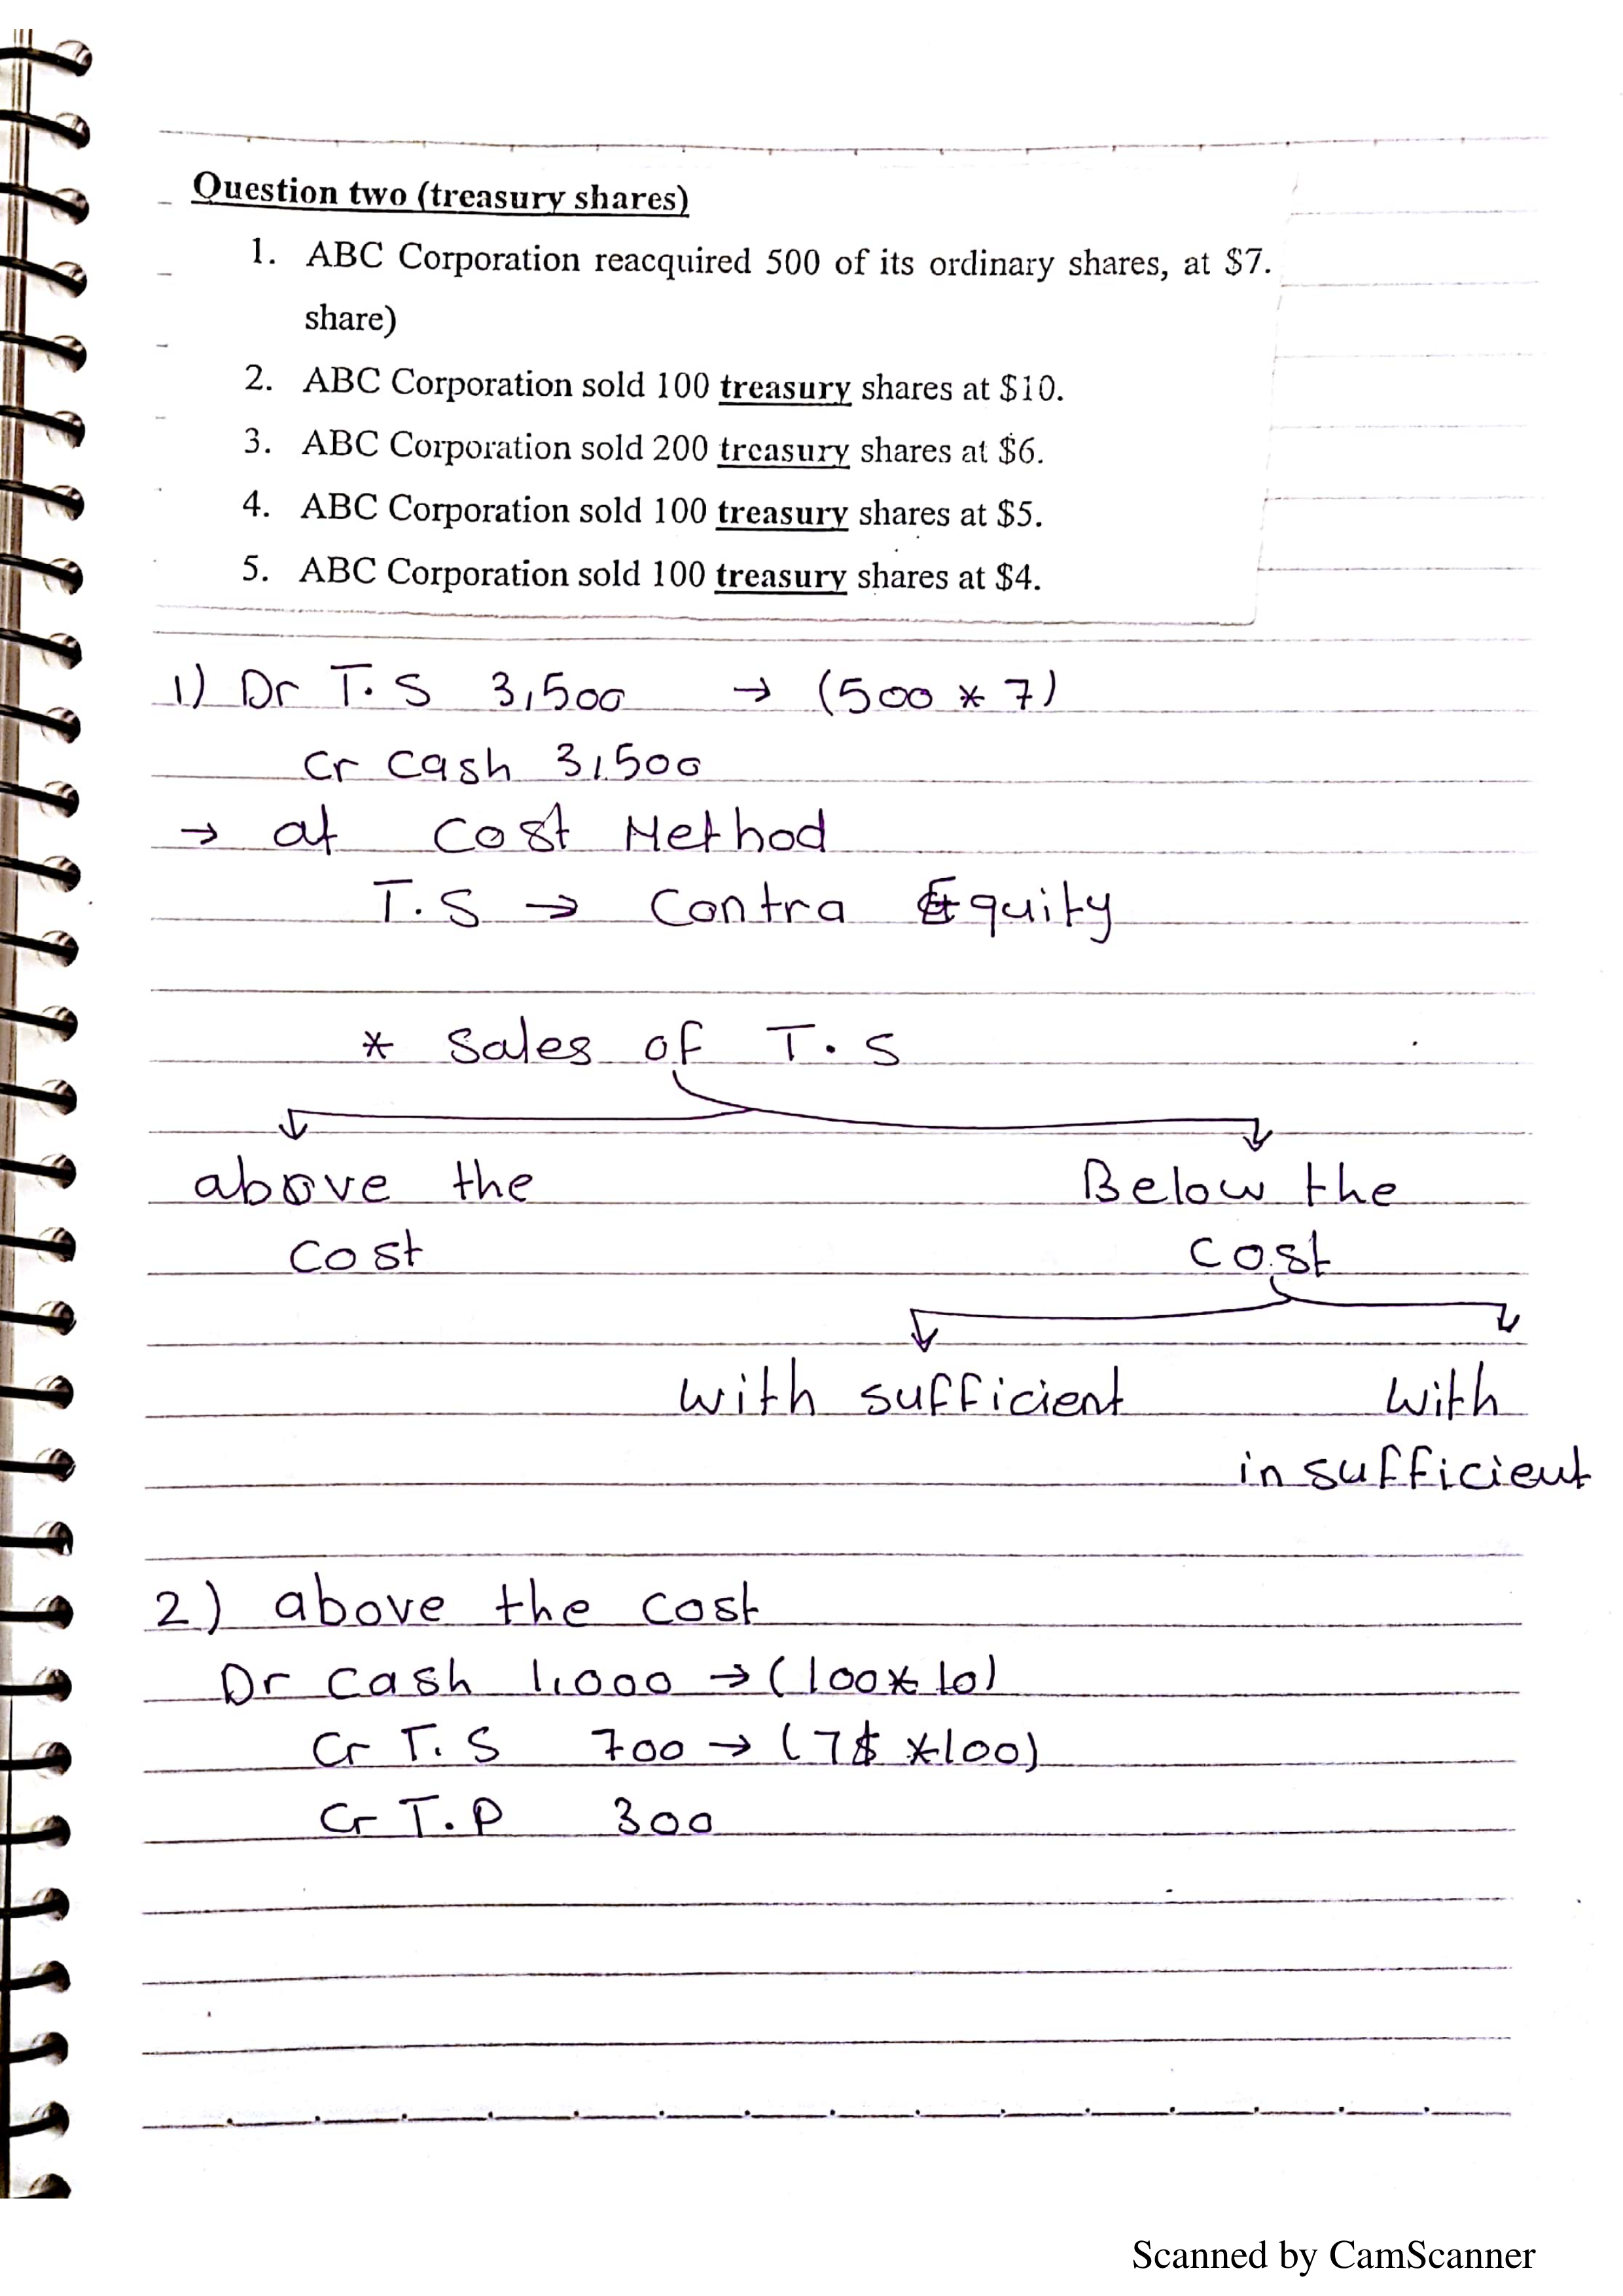 Question two (treasury shares)
1. ABC Corporation reacquired 500 of its ordinary shares, at $7.
share)
2. ABC Corporation sold 100 treasury shares at $10.
3. ABC Corporation sold 200 treasury shares at $6.
4. ABC Corporation sold 100 treasury shares at $5.
5. ABC Corporation sold 100 treasury shares at $4.
1) Dr T.S 3,500 → (500 * 7)
Cr Cash 3,500
→ at Cost Method
T.S → Contra Equity
* Sales of T.S
above the Below the
Cost Cost
with sufficient with
insufficient
2) above the Cost
Dr Cash 1,000 → (100*10)
Cr T.S 700 → (7$ *100)
Cr T.P 300
Scanned by CamScanner